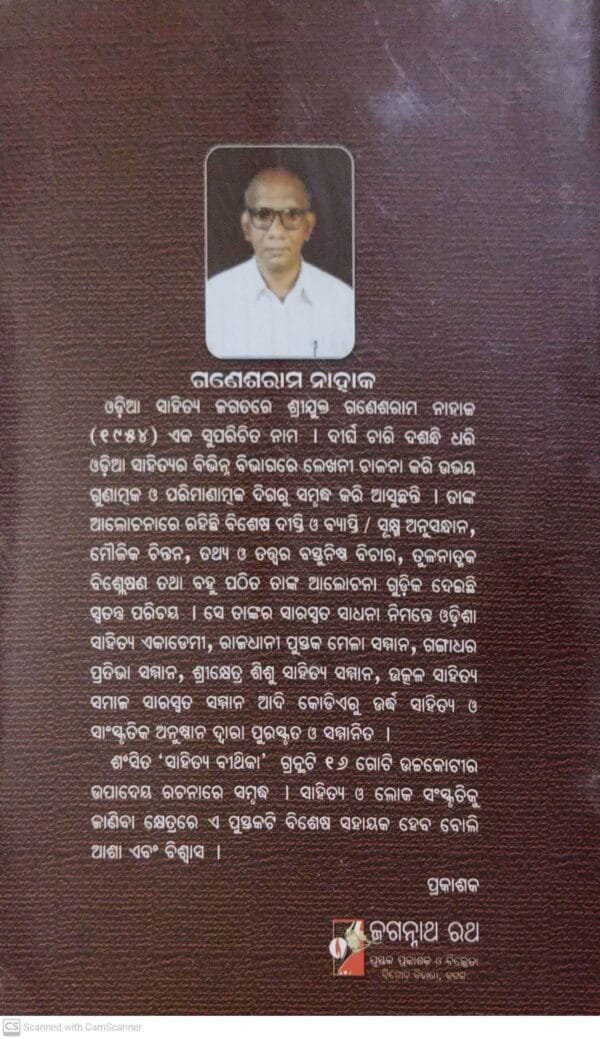 ଗଣେଶରାମ ନାହାକ
ଓଡ଼ିଆ ସାହିତ୍ୟ ଜଗତରେ ଶ୍ରୀଯୁକ୍ତ ଗଣେଶରାମ ନାହାକ
(୧୯୫୪) ଏକ ସୁପରିଚିତ ନାମ । ଦୀର୍ଘ ଚାରି ଦଶନ୍ଧି ଧରି
ଓଡ଼ିଆ ସାହିତ୍ୟର ବିଭିନ୍ନ ବିଭାଗରେ ଲେଖନୀ ଚାଳନା କରି ଉଭୟ
ଗୁଣାତ୍ମକ ଓ ପରିମାଣାତ୍ମକ ଦିଗରୁ ସମୃଦ୍ଧ କରି ଆସୁଛନ୍ତି । ତାଙ୍କ
ଆଲୋଚନାରେ ରହିଛି ବିଶେଷ ଦୀପ୍ତି ଓ ବ୍ୟାପ୍ତି / ସୂକ୍ଷ୍ମ ଅନୁସନ୍ଧାନ,
ମୌଳିକ ଚିନ୍ତନ, ତଥ୍ୟ ଓ ତତ୍ତ୍ୱର ବସ୍ତୁନିଷ୍ଠ ବିଚାର, ତୁଳନାତ୍ମକ
ବିଶ୍ଳେଷଣ ତଥା ବହୁ ପଠିତ ତାଙ୍କ ଆଲୋଚନା ଗୁଡ଼ିକ ଦେଇଛି
ସ୍ୱତନ୍ତ୍ର ପରିଚୟ । ସେ ତାଙ୍କର ସାରସ୍ୱତ ସାଧନା ନିମନ୍ତେ ଓଡ଼ିଶା
ସାହିତ୍ୟ ଏକାଡେମୀ, ରାଜଧାନୀ ପୁସ୍ତକ ମେଳା ସମ୍ମାନ, ଗଙ୍ଗାଧର
ପ୍ରତିଭା ସମ୍ମାନ, ଶ୍ରୀକ୍ଷେତ୍ର ଶିଶୁ ସାହିତ୍ୟ ସମ୍ମାନ, ଉତ୍କଳ ସାହିତ୍ୟ
ସମାଜ ସାରସ୍ୱତ ସମ୍ମାନ ଆଦି କୋଡିଏରୁ ଉର୍ଦ୍ଧ ସାହିତ୍ୟ ଓ
ସାଂସ୍କୃତିକ ଅନୁଷ୍ଠାନ ଦ୍ୱାରା ପୁରସ୍କୃତ ଓ ସମ୍ମାନିତ ।
ଶଂସିତ ‘ସାହିତ୍ୟ ବୀଥିକା’ ଗ୍ରନ୍ଥଟି ୧୬ ଗୋଟି ଉଚ୍ଚକୋଟୀର
ଉପାଦେୟ ରଚନାରେ ସମୃଦ୍ଧ । ସାହିତ୍ୟ ଓ ଲୋକ ସଂସ୍କୃତିକୁ
ଜାଣିବା କ୍ଷେତ୍ରରେ ଏ ପୁସ୍ତକଟି ବିଶେଷ ସହାୟକ ହେବ ବୋଲି
ଆଶା ଏବଂ ବିଶ୍ୱାସ ।
ପ୍ରକାଶକ
ଜଗନ୍ନାଥ ରଥ
ପୁସ୍ତକ ପ୍ରକାଶକ ଓ ବିକ୍ରେତା
ବିନୋଦ ବିହାରୀ, କଟକ
CS Scanned with CamScanner